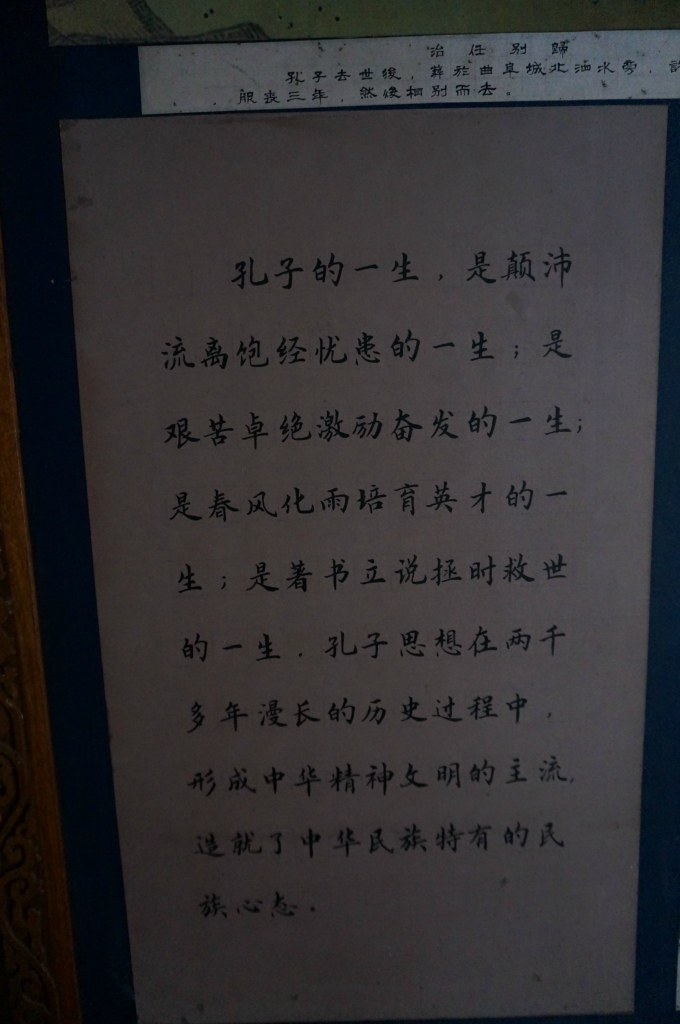 治任别歸
孔子去世後，葬於曲阜城北泗水旁，
服丧三年，然後相别而去。
孔子的一生，是颠沛
流离饱经忧患的一生；是
艰苦卓绝激励奋发的一生；
是春风化雨培育英才的一
生；是著书立说拯时救世
的一生．孔子思想在两千
多年漫长的历史过程中，
形成中华精神文明的主流，
造就了中华民族特有的民
族心态．